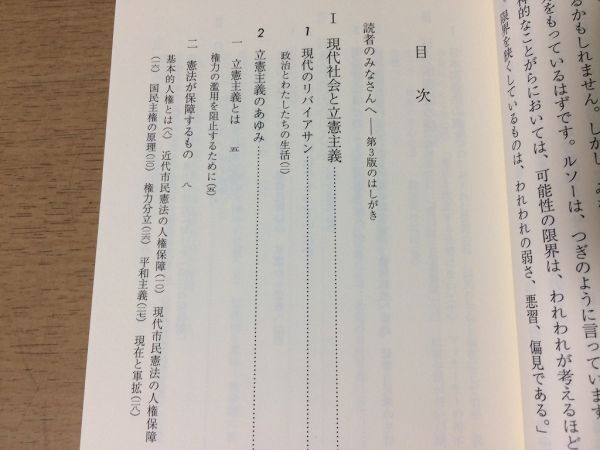 るかもしれません。しかし、
をもっているはずです。ルソーは、つぎのように言っています
神的なことがらにおいては、可能性の限界は、われわれが考えるほど
限界を狭くしているものは、われわれの弱さ、悪習、偏見である。」
目次
読者のみなさんへ——第3版のはしがき
I 現代社会と立憲主義
1 現代のリバイアサン
政治とわたしたちの生活(二)
2 立憲主義のあゆみ
一 立憲主義とは 五
権力の濫用を阻止するために(五)
二 憲法が保障するもの 八
基本的人権とは(八) 近代市民憲法の人権保障(一〇) 現代市民憲法の人権保障
(一六) 国民主権の原理(二〇) 権力分立(二六) 平和主義(二七) 現在と軍拡(二八)